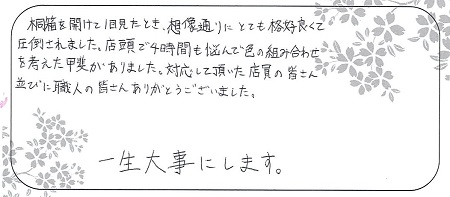 桐箱を開けて1目見たとき、想像通りにとても格好良くて
圧倒されました。店頭で4時間も悩んで色の組み合わせ
を考えた甲斐がありました。対応して頂いた店員の皆さん
並びに職人の皆さんありがとうございました。
一生大事にします。